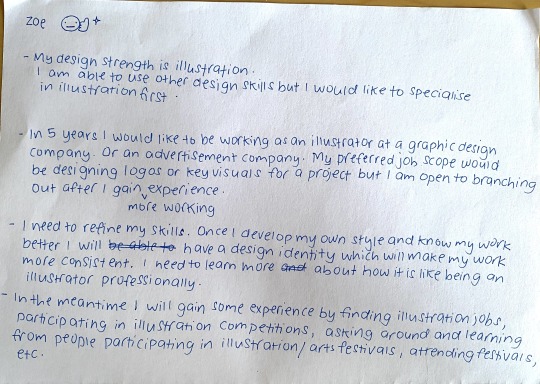 zoe
- My design strength is illustration.
I am able to use other design skills but I would like to specialise
in illustration first.
- In 5 years I would like to be working as an illustrator at a graphic design
company. Or an advertisement company. My preferred job scope would
be designing logos or key visuals for a project but I am open to branching
out after I gain more working experience.
- I need to refine my skills. Once I develop my own style and know my work
better I will be able to have a design identity which will make my work
more consistent. I need to learn more and about how it is like being an
illustrator professionally.
- In the meantime I will gain some experience by finding illustration jobs,
participating in illustration competitions, asking around and learning
from people participating in illustration/arts festivals, attending festivals,
etc.